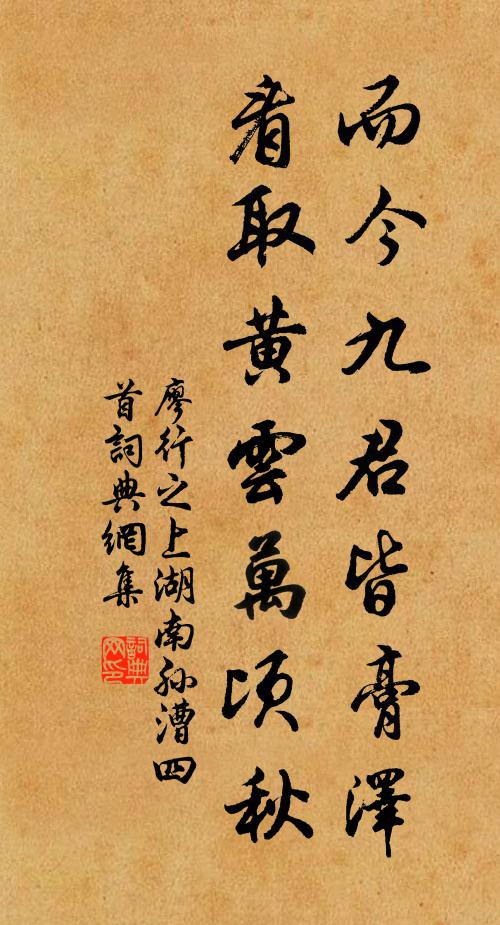 而今九君皆膏澤
看取黄雲萬頃秋
廖行之上湖南孙漕四
首詞典網集
詞典
网印